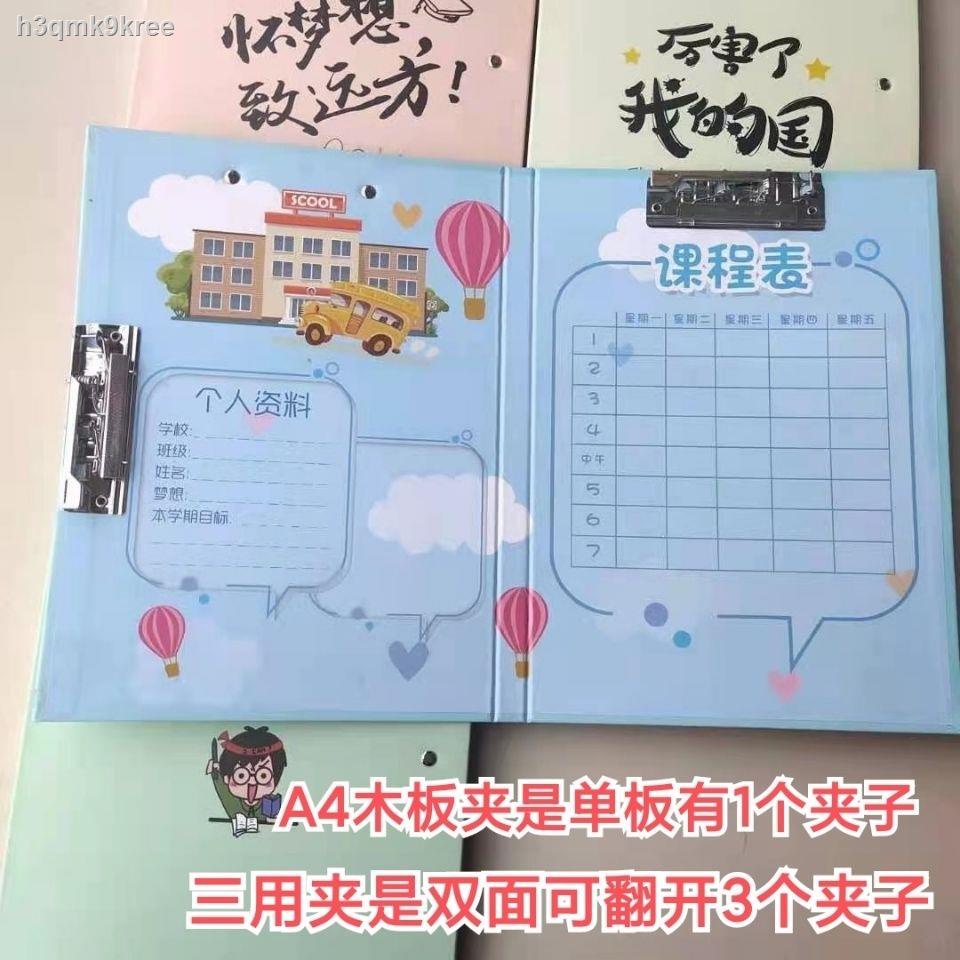 h3qmk9kree
怀梦想,
致远方!
厉害了
我的国
SCOOL
个人资料
学校:
班级:
姓名:
梦想:
本学期目标:
课程表
星期一 星期二 星期三 星期四 星期五
1
2
3
4
中午
5
6
7
A4木板夹是单板有1个夹子
三用夹是双面可翻开3个夹子